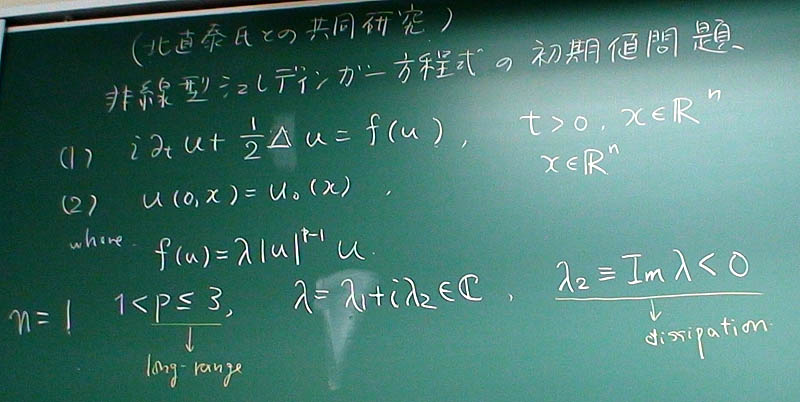 (北直泰氏との共同研究)
非線型シュレディンガー方程式の初期値問題、
(1) i∂ₜu + 1/2 Δu = f(u), t>0, x∈ℝⁿ
(2) u(0,x) = u₀(x), x∈ℝⁿ
where f(u) = λ|u|^{p-1} u.
n=1 1<p≤3, λ=λ₁+iλ₂∈ℂ, λ₂≡Imλ<0
↓ long-range ↓ dissipation